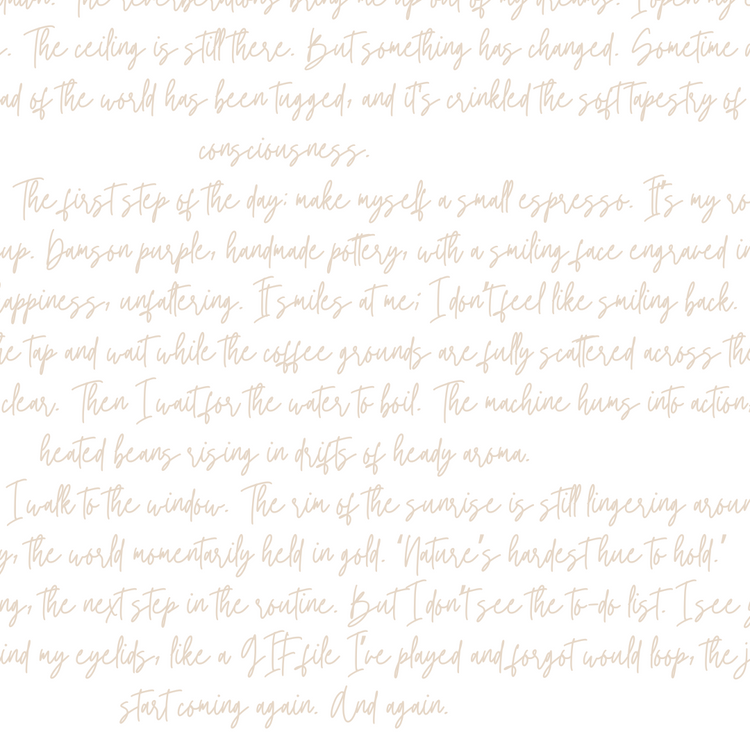 The reverberations bring me up out of my dreams. I open my
The ceiling is still there. But something has changed. Sometime
of the world has been tugged, and it's crinkled the soft tapestry of
consciousness.
The first step of the day: make myself a small espresso. It's my
up. Damson purple, handmade pottery, with a smiling face engraved
happiness, unfaltering. It smiles at me; I don't feel like smiling back.
tap and wait while the coffee grounds are fully scattered across
clear. Then I wait for the water to boil. The machine hums into action,
heated beans rising in drifts of heady aroma.
I walk to the window. The rim of the sunrise is still lingering
the world momentarily held in gold. 'Nature's hardest hue to hold.'
the next step in the routine. But I don't see the to-do list. I see
my eyelids, like a GIF file I've played and forgot would loop, the
start coming again. And again.